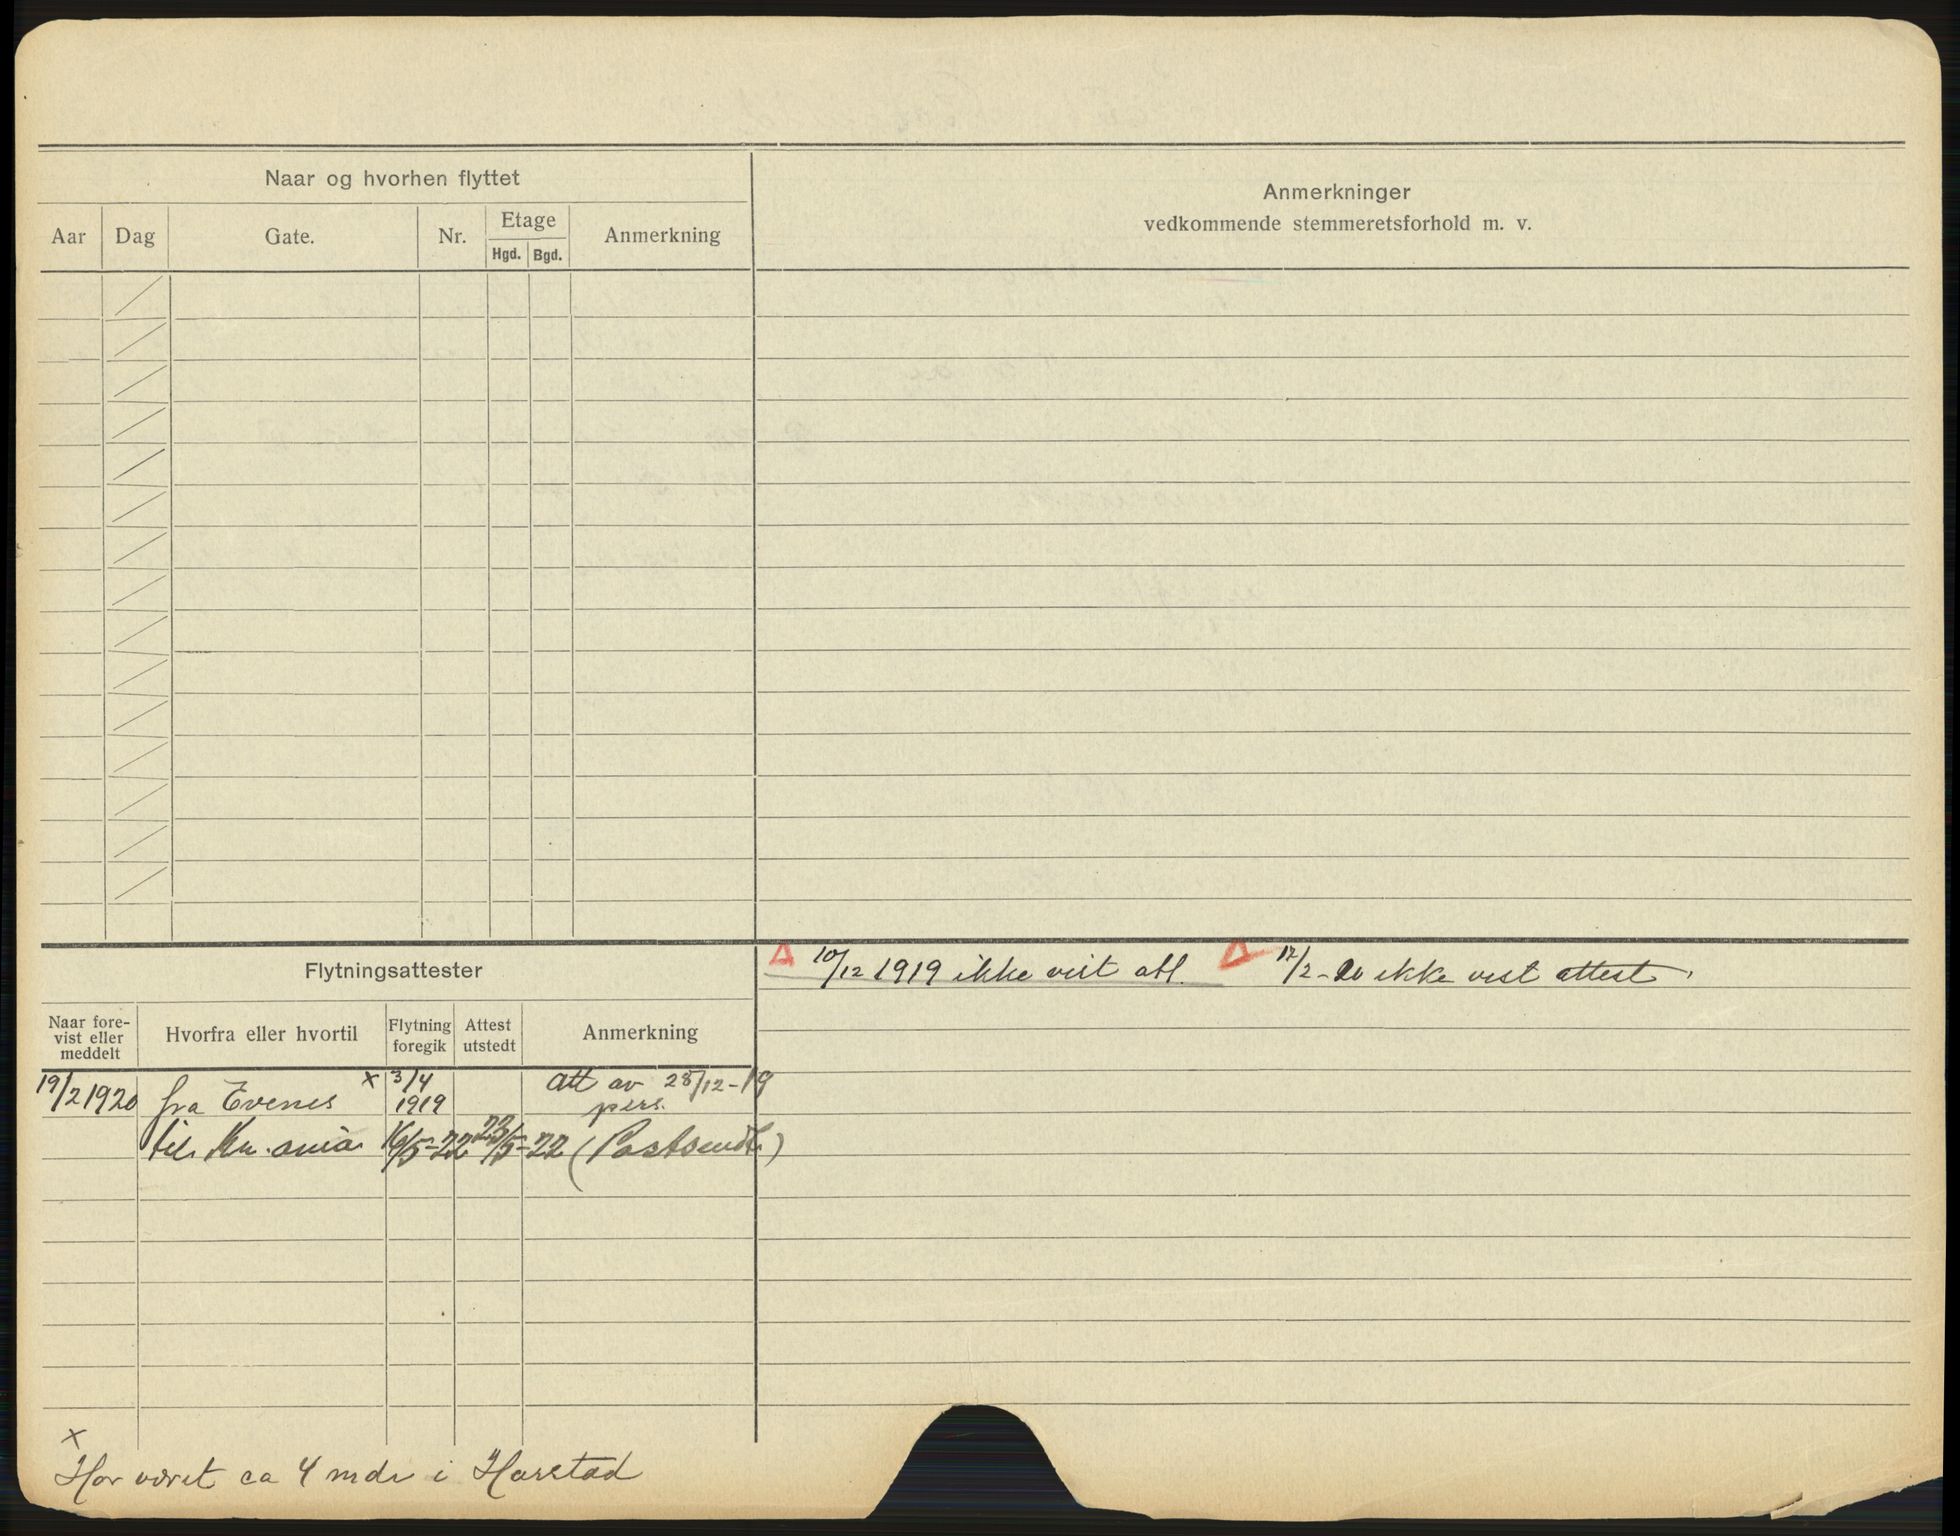 Naar og hvorhen flyttet
Aar Dag Gate. Nr. Etage Hgd. Bgd. Anmerkning
Anmerkninger
vedkommende stemmeretsforhold m. v.
10/12 1919 ikke vist att. 17/2-20 ikke vist attest
Flytningsattester
Naar fore-
vist eller
meddelt
Hvorfra eller hvortil
Flytning
foregik
Attest
utstedt
Anmerkning
19/2 1920 fra Evenes x 3/4 1919 att av 28/12-19
pers.
til Kr.ania 16/5-22 23/5-22 (Postsendt.)
x
Har været ca 4 mdr i Harstad